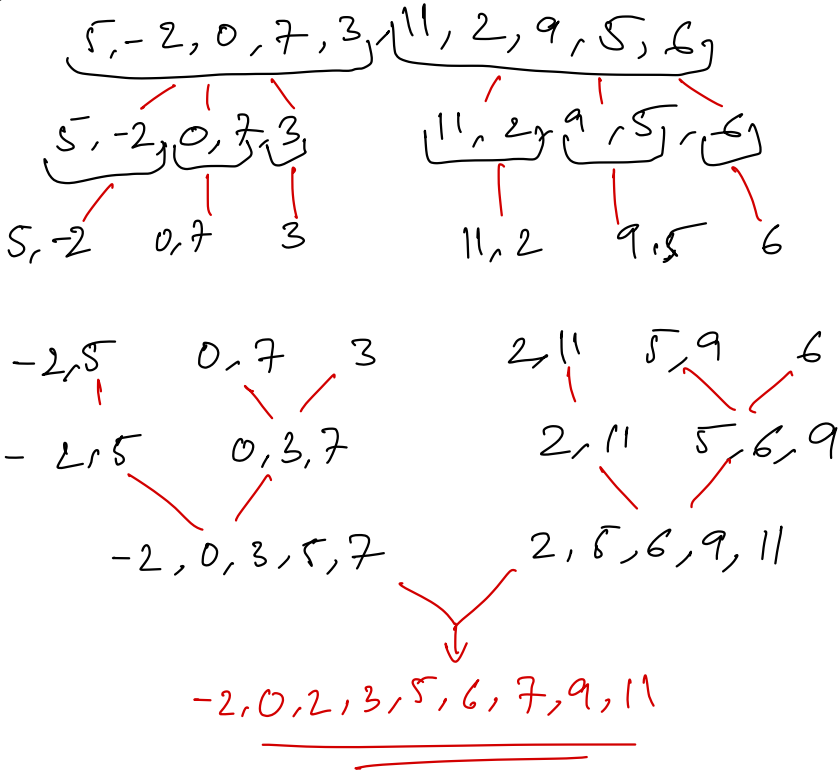 5, -2, 0, 7, 3, 11, 2, 9, 5, 6,
5, -2, 0, 7, 3 11, 2, 9, 5, 6
5, -2 0, 7 3 11, 2 9, 5 6
-2, 5 0, 7 3 2, 11 5, 9 6
-2, 5 0, 3, 7 2, 11 5, 6, 9
-2, 0, 3, 5, 7 2, 5, 6, 9, 11
-2, 0, 2, 3, 5, 6, 7, 9, 11